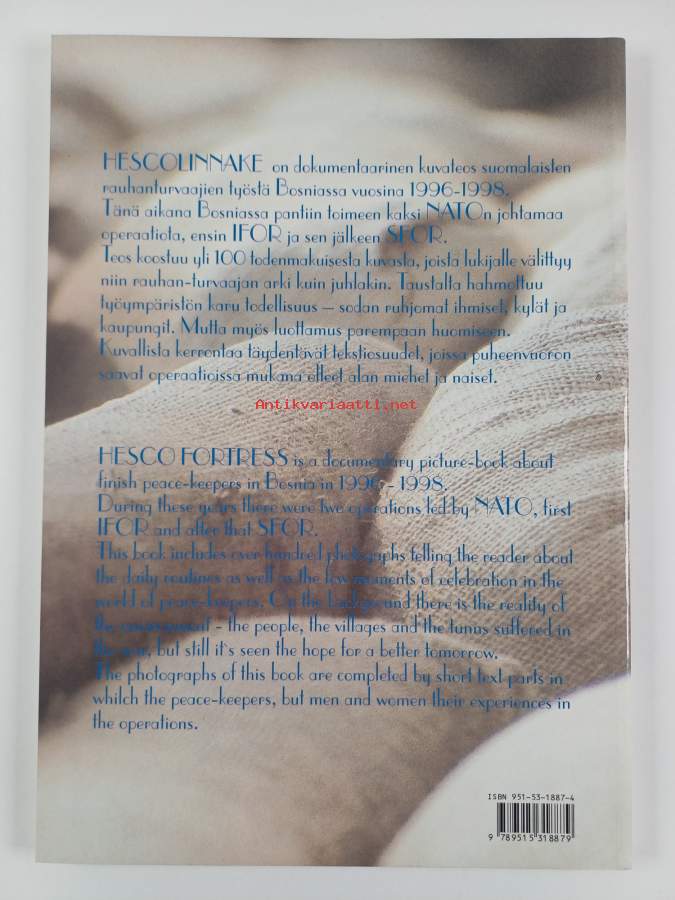 HESCOLINNAKE on dokumentaarinen kuvateos suomalaisten
rauhanturvaajien työstä Bosniassa vuosina 1996-1998.
Tänä aikana Bosniassa pantiin toimeen kaksi NATOn johtamaa
operaatiota, ensin IFOR ja sen jälkeen SFOR.
Teos koostuu yli 100 todenmakuisesta kuvasta, joista lukijalle välittyy
niin rauhan-turvaajan arki kuin juhlakin. Taustalta hahmottuu
työympäristön karu todellisuus – sodan ruhjomat ihmiset, kylät ja
kaupungit. Mutta myös luottamus parempaan huomiseen.
Kuvallista kerrontaa täydentävät tekstiosuudet, joissa puheenvuoron
saavat operaatioissa mukana olleet alan miehet ja naiset.
Antikvariaatti.net
HESCO FORTRESS is a documentary picture-book about
finish peace-keepers in Bosnia in 1996 - 1998.
During these years there were two operations led by NATO, first
IFOR and after that SFOR.
This book includes over hundred photographs telling the reader about
the daily routines as well as the few moments of celebration in the
world of peace-keepers. On the background there is the reality of
the environment - the people, the villages and the tunus suffered in
the war, but still it's seen the hope for a better tomorrow.
The photographs of this book are completed by short text parts in
whilch the peace-keepers, but men and women their experiences in
the operations.
ISBN 951-53-1887-4
9 789515 318879